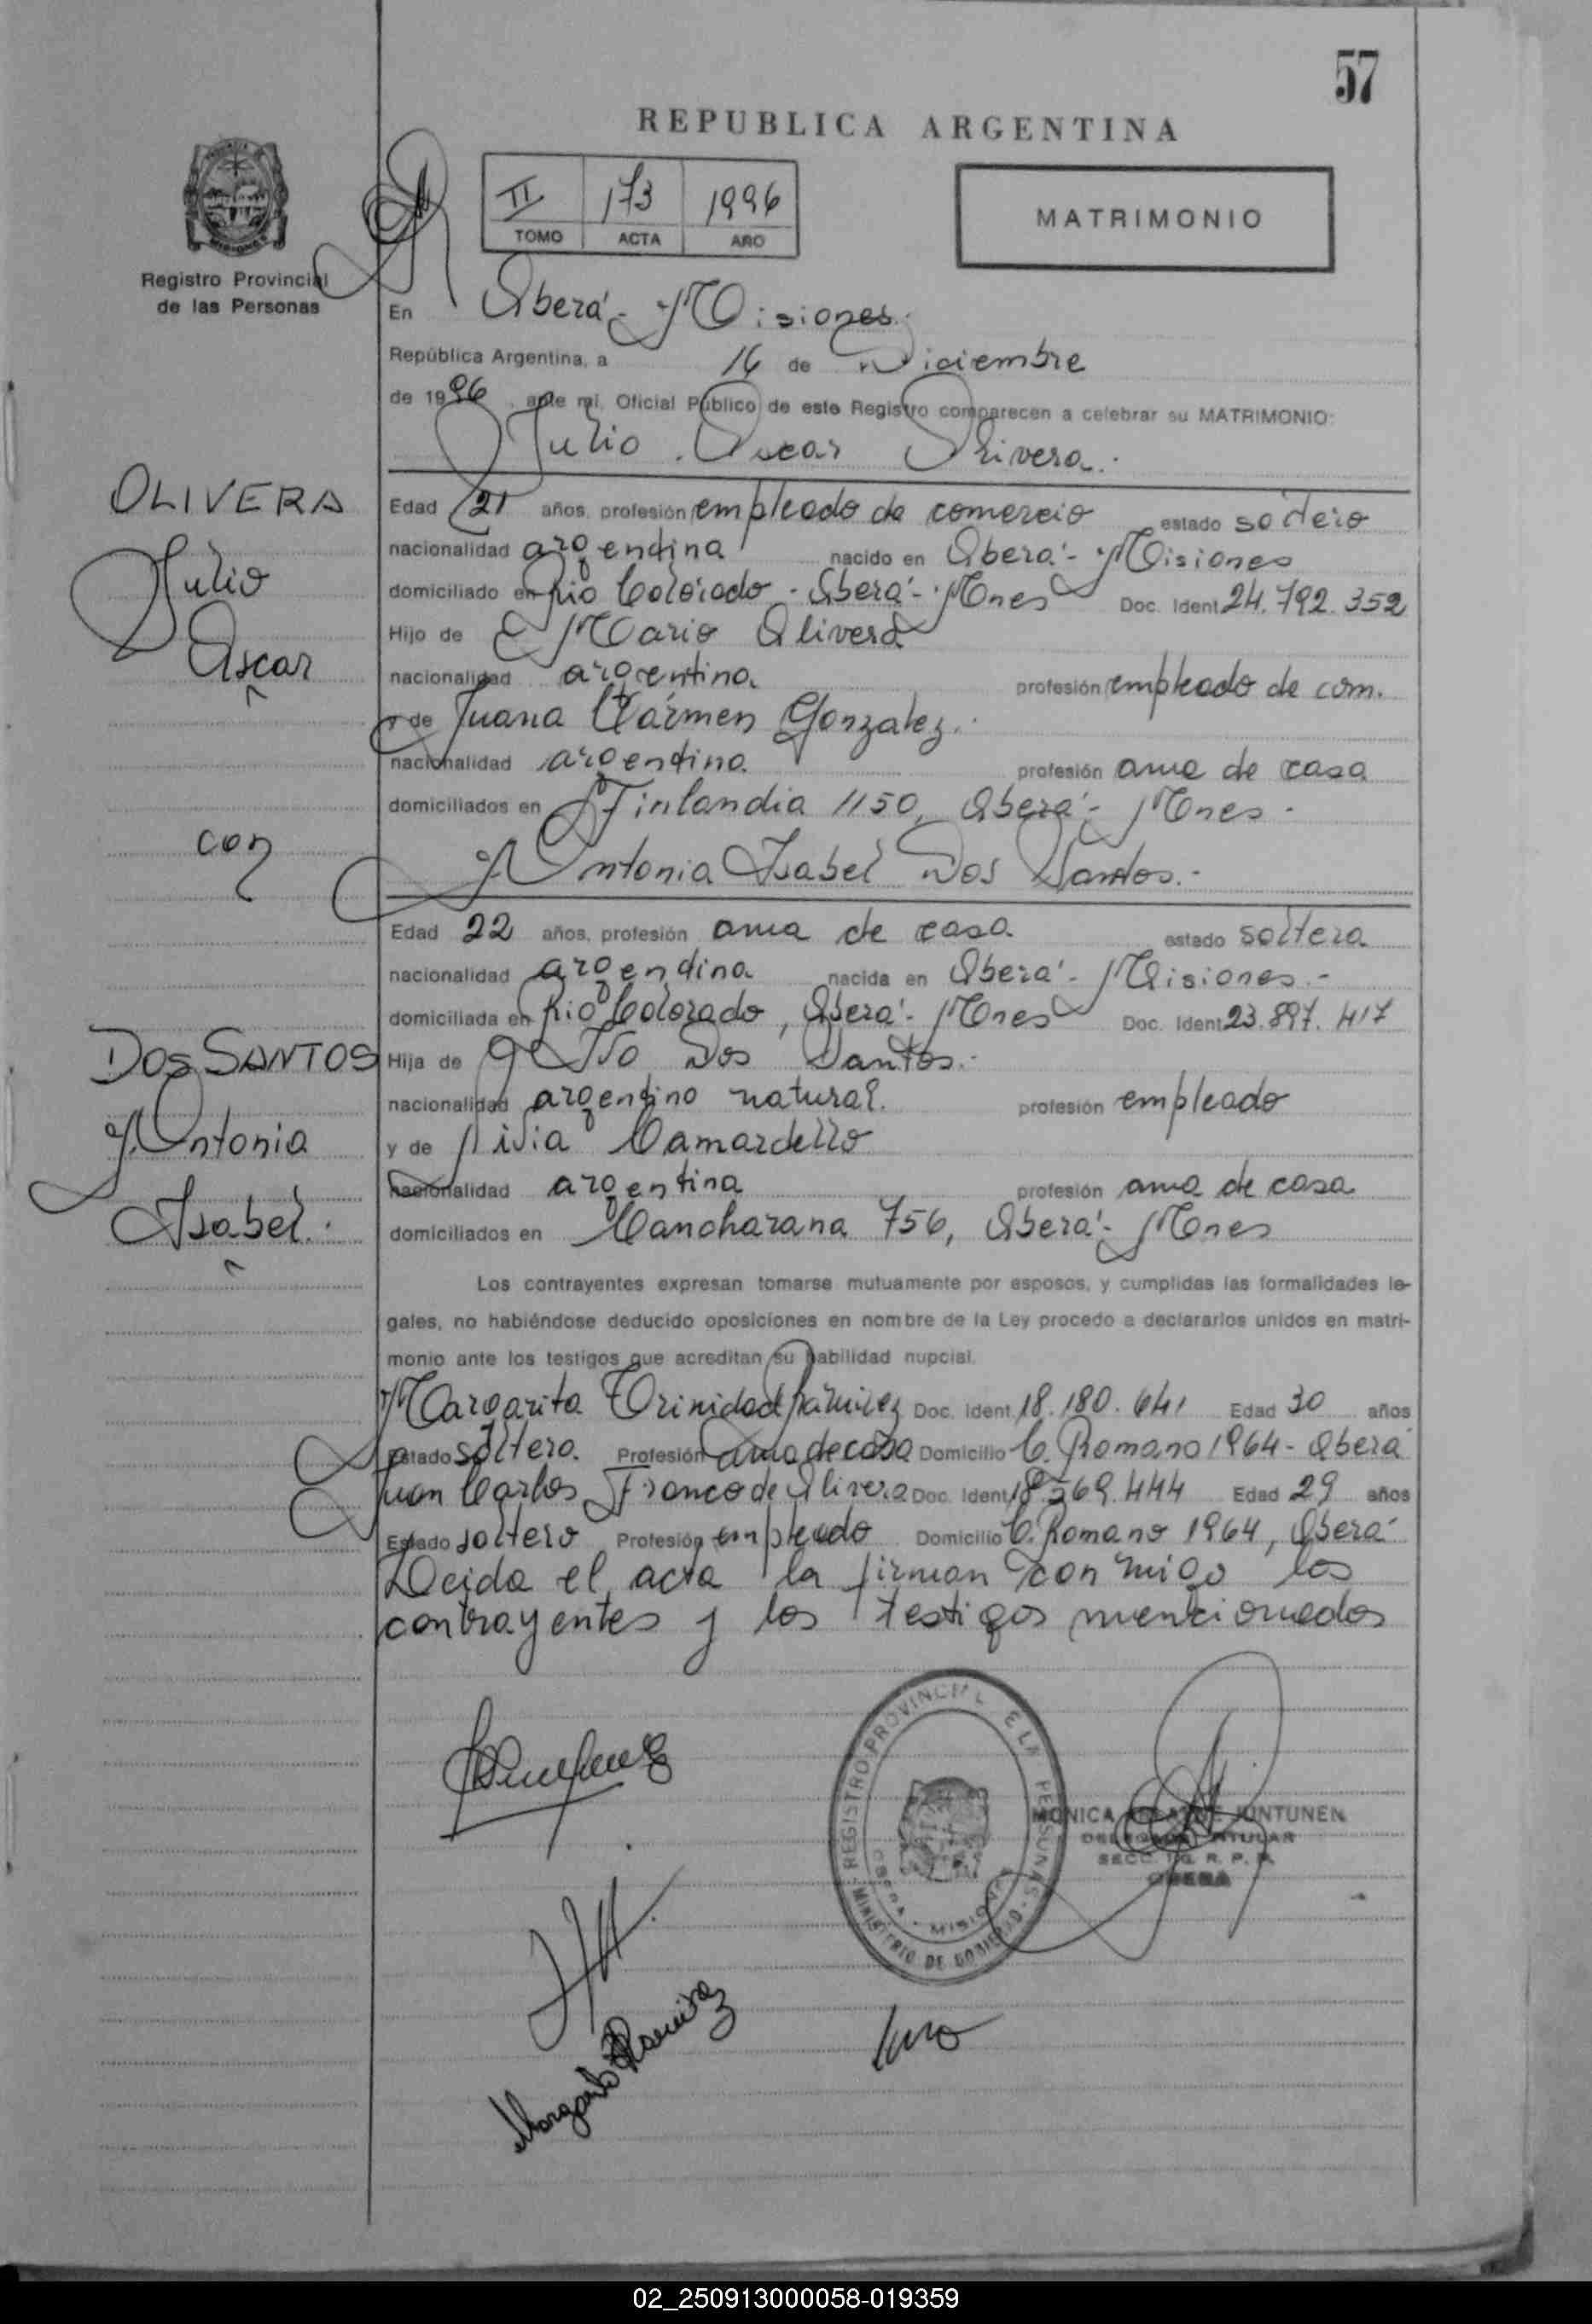 57
REPUBLICA ARGENTINA
II 173 1996
TOMO ACTA AÑO
MATRIMONIO
Registro Provincial
de las Personas
En Oberá - Misiones.
República Argentina, a 16 de Diciembre
de 1996, ante mi, Oficial Público de este Registro comparecen a celebrar su MATRIMONIO:
Julio Oscar Olivera.
OLIVERA
Julio
Oscar
con
DOS SANTOS
Antonia
Isabel.
Edad 21 años, profesión empleado de comercio estado soltero
nacionalidad argentina nacido en Oberá - Misiones
domiciliado en Río Colorado - Oberá - Mnes Doc. Ident. 24.792.352
Hijo de Mario Olivera
nacionalidad argentina profesión empleado de com.
y de Juana Cármen Gonzalez.
nacionalidad argentina profesión ama de casa
domiciliados en Finlandia 1150, Oberá - Mnes -
Antonia Isabel Dos Santos.-
Edad 22 años, profesión ama de casa estado soltera
nacionalidad argentina nacida en Oberá - Misiones.-
domiciliada en Río Colorado, Oberá - Mnes Doc. Ident. 23.897.417
Hija de Dos Santos.
nacionalidad argentino natural. profesión empleado
y de Camardello
nacionalidad argentina profesión ama de casa
domiciliados en 756, Oberá - Mnes
Los contrayentes expresan tomarse mutuamente por esposos, y cumplidas las formalidades le-
gales, no habiéndose deducido oposiciones en nombre de la Ley procedo a declararlos unidos en matri-
monio ante los testigos que acreditan su habilidad nupcial.
Margarita Trinidad Ramirez Doc. Ident. 18.180.641 Edad 30 años
Estado soltera. Profesión ama de casa Domicilio C. Romano 1964 - Oberá
Juan Carlos Franco de Olivera Doc. Ident. 18.269.444 Edad 29 años
Estado soltero Profesión empleado Domicilio C. Romano 1964, Oberá
Leida el acta la firman con migo los
contrayentes y los testigos mencionados
REGISTRO PROVINCIAL DE LAS PERSONAS
OBERA - MISIONES
MINISTERIO DE GOBIERNO
MONICA JUNTUNEN
TITULAR
SECC. R. P. P.
OBERA
Margarita Ramirez
02_250913000058-019359